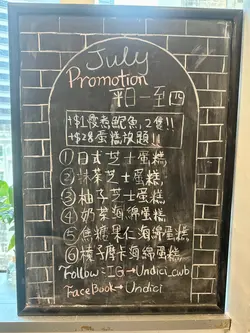 July
Promotion
平日一至四
+$1慢煮鮑魚,2隻!!
+$28蛋糕放題!!
①日式芝士蛋糕
②抹茶芝士蛋糕
③柚子芝士蛋糕
④奶茶海綿蛋糕
⑤焦糖果仁海綿蛋糕
⑥榛子摩卡海綿蛋糕
Follow:IG→Undici_cwb
FaceBook→Undici